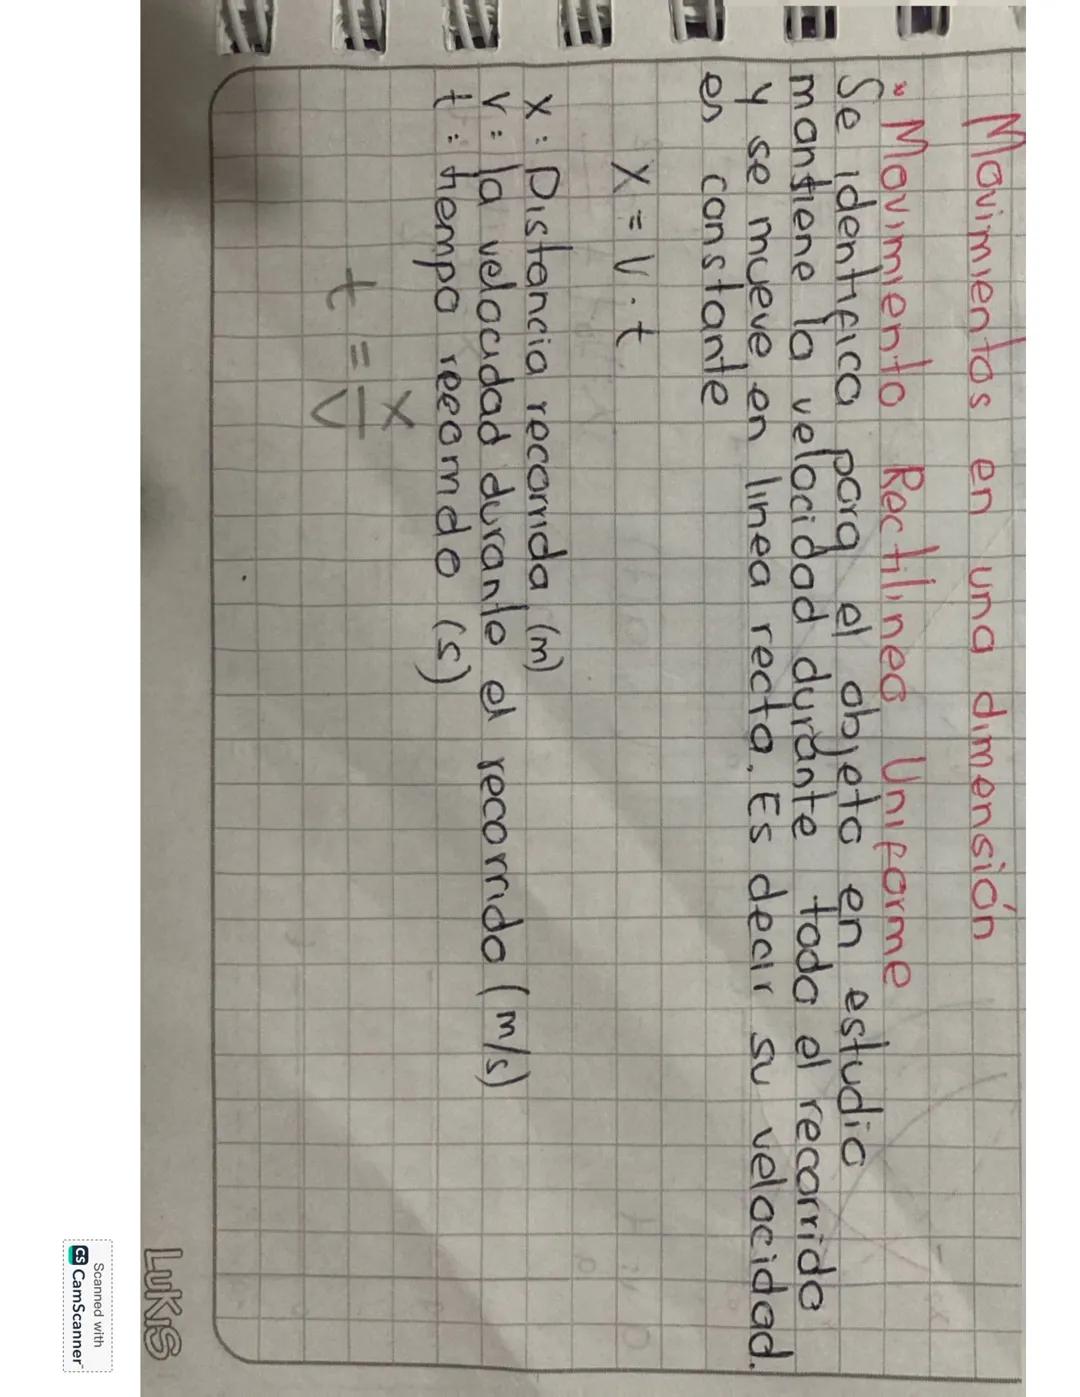 Movimientos en una dimensión
* Movimiento Rectilineo Uniforme
Se identifica porq el objeto en estudio
mantiene la velocidad durante todo el recorrido
y se mueve en linea recta. Es decir su velocidad.
es constante
X = V · t
X : Distancia recorrida (m)
V : la velocidad durante el recorrido (m/s)
t : tiempo recorrido (s)
t = X
V
LUKIS
Scanned with
CS CamScanner